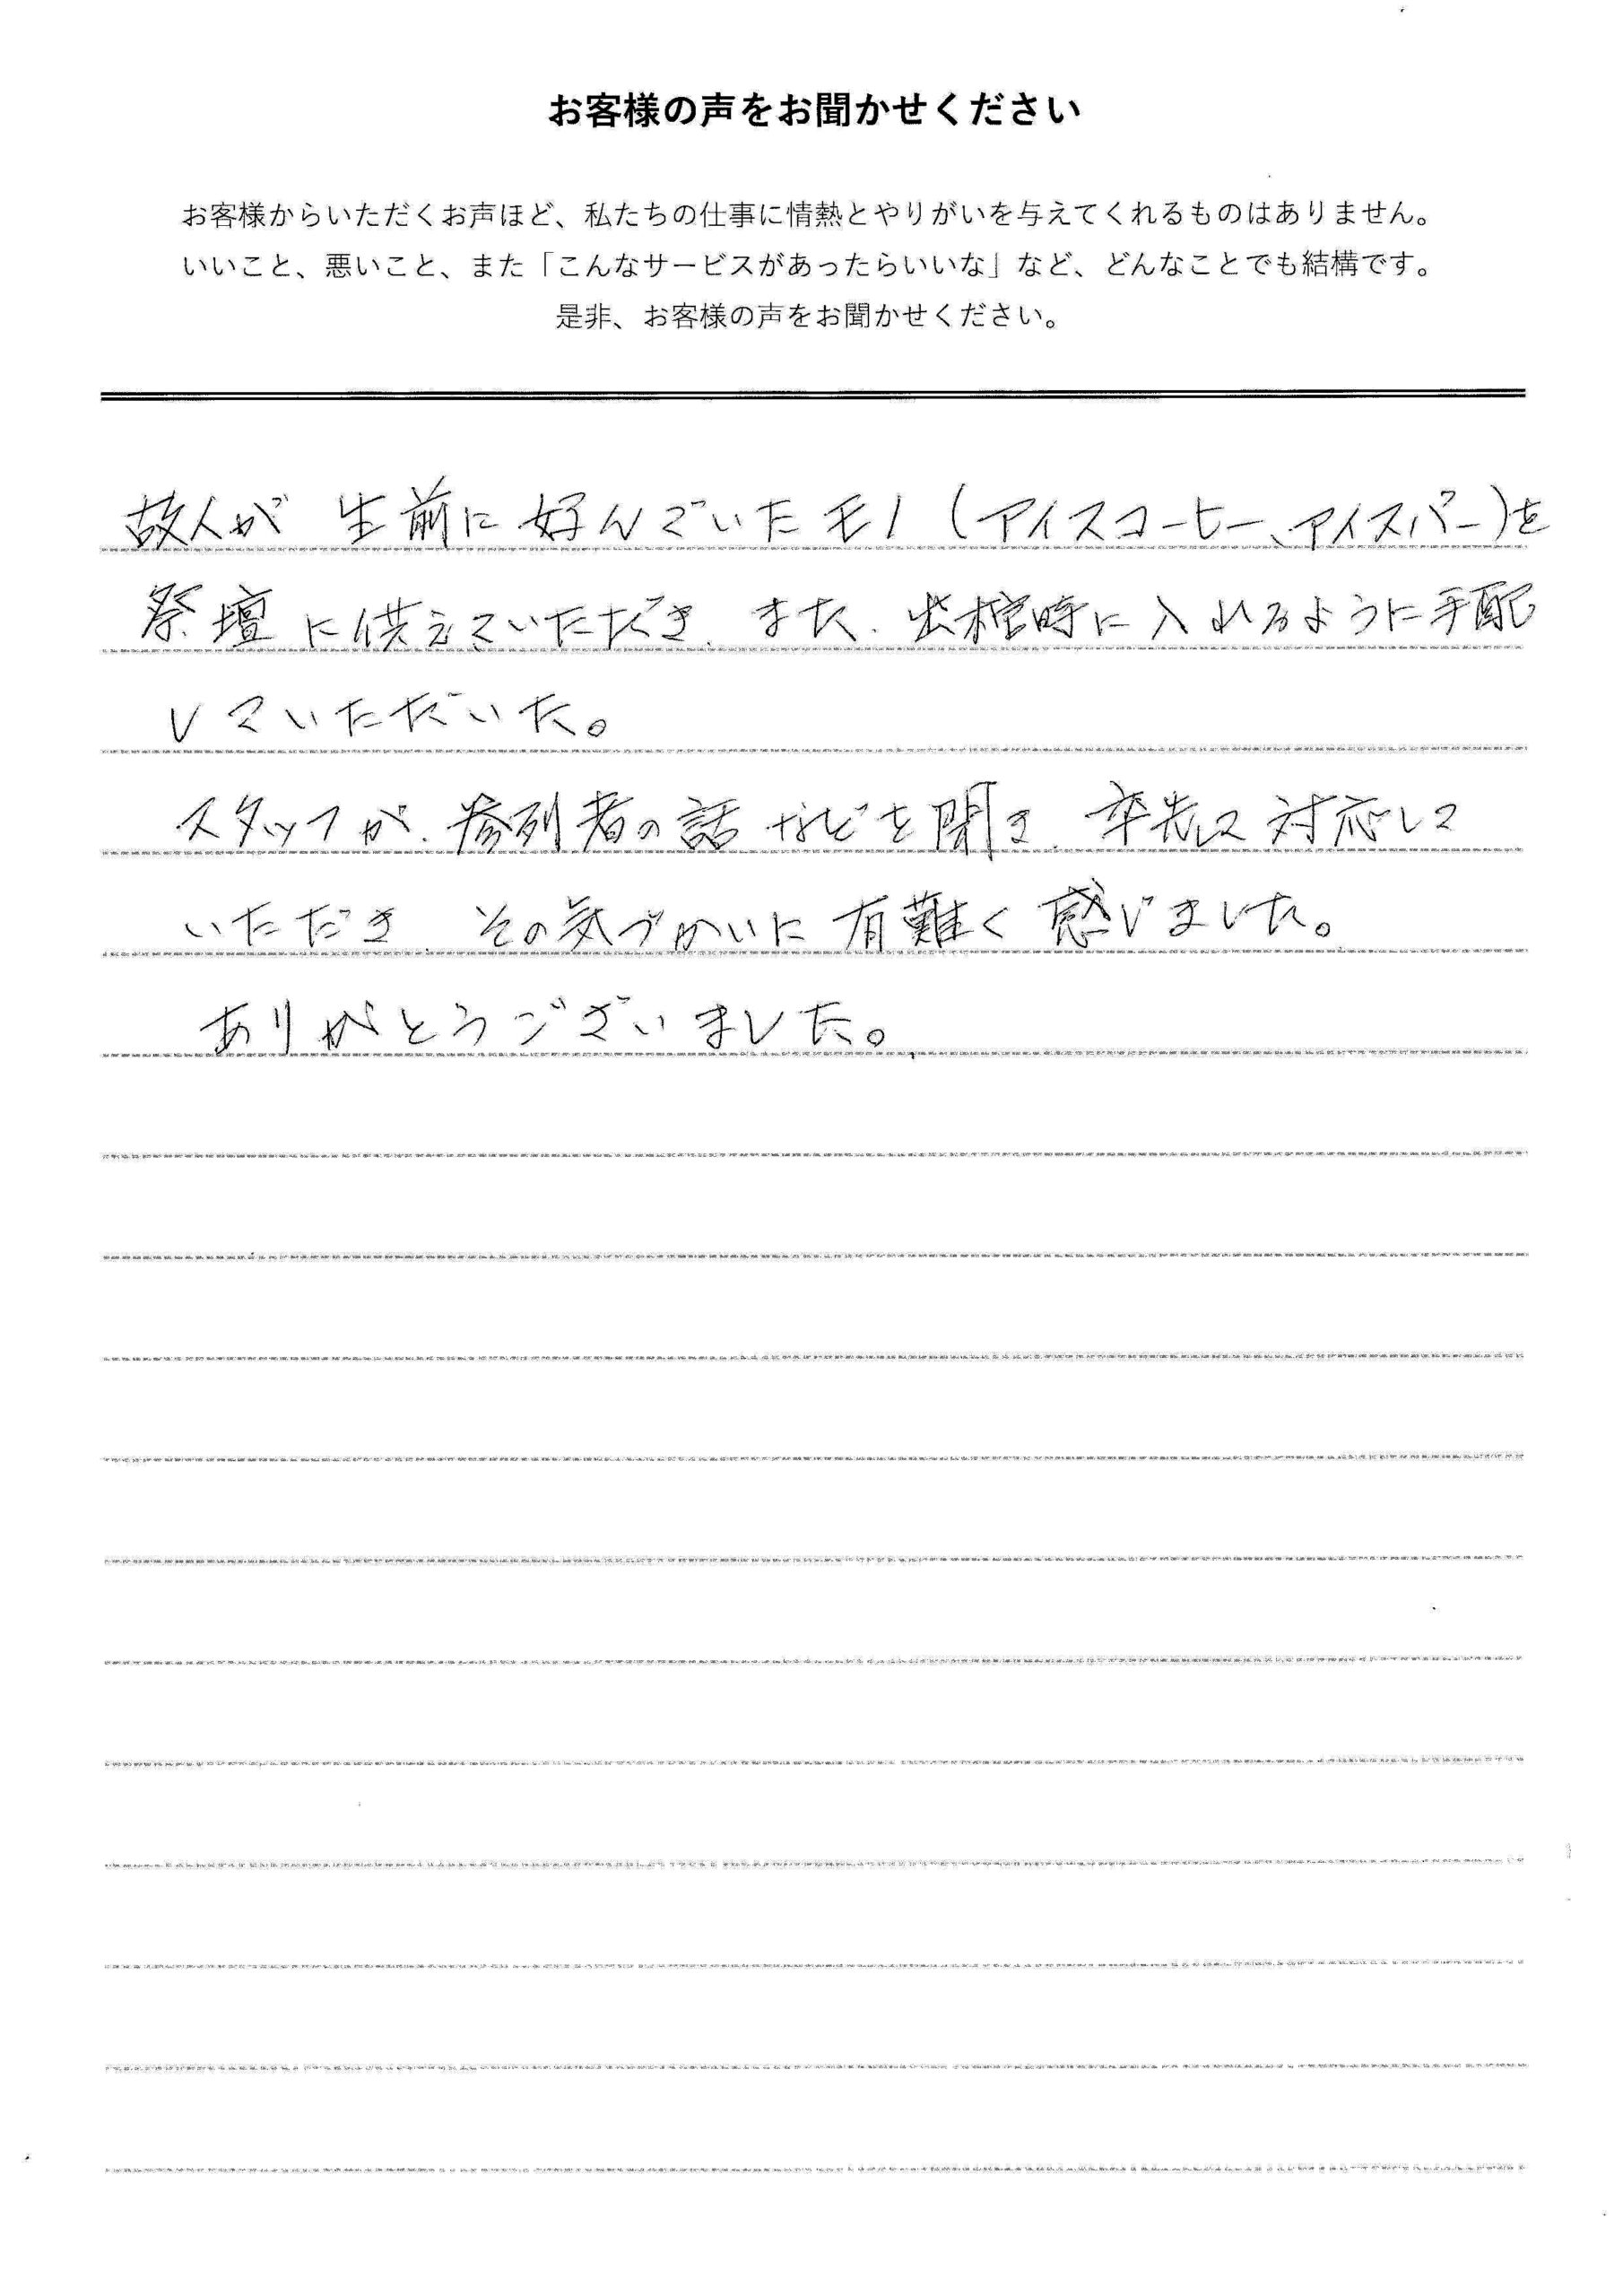 お客様の声をお聞かせください
お客様からいただくお声ほど、私たちの仕事に情熱とやりがいを与えてくれるものはありません。
いいこと、悪いこと、また「こんなサービスがあったらいいな」など、どんなことでも結構です。
是非、お客様の声をお聞かせください。
故人が 生前に好んでいたモノ(アイスコーヒー、アイスバー)を
祭壇に供えていただき、また、出棺時に入れるように手配
していただいた。
スタッフが、参列者の話などを聞き、率先して対応して
いただき、その気づかいに有難く感じました。
ありがとうございました。